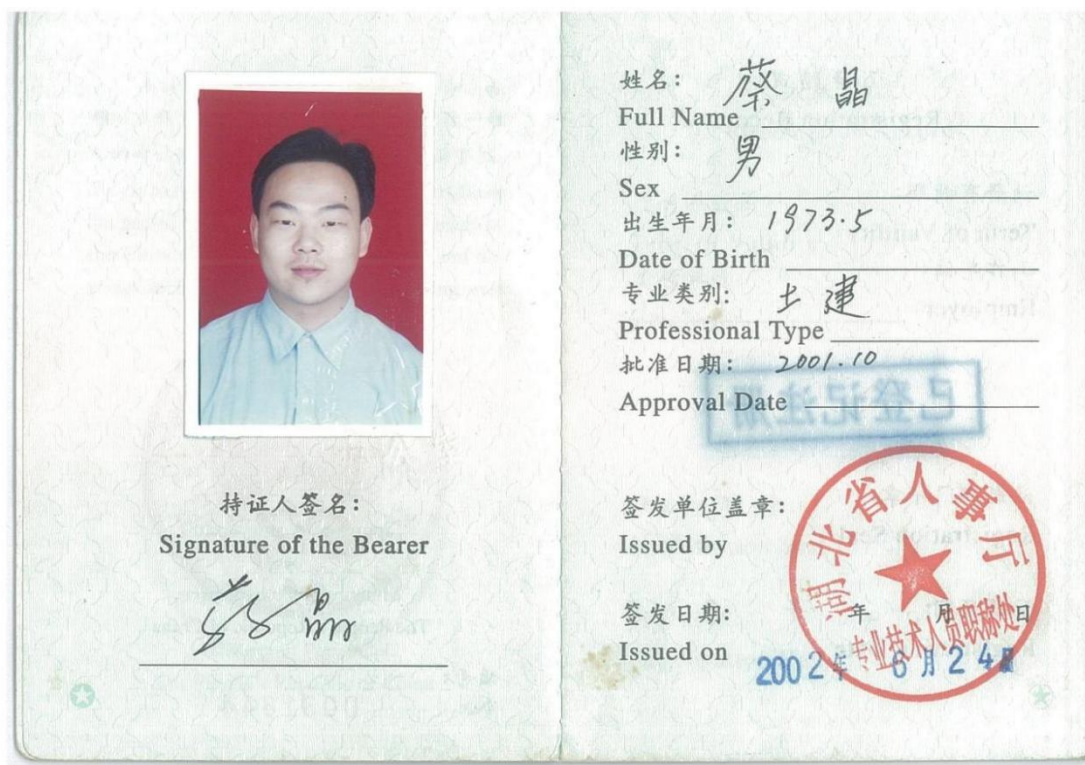 持证人签名:
Signature of the Bearer
蔡晶
姓名: 蔡晶
Full Name
性别: 男
Sex
出生年月: 1973.5
Date of Birth
专业类别: 土建
Professional Type
批准日期: 2001.10
Approval Date
已登记注册
签发单位盖章:
Issued by
湖北省人事厅
专业技术人员职称处
签发日期: 年 月 日
Issued on
2002年 6月24日